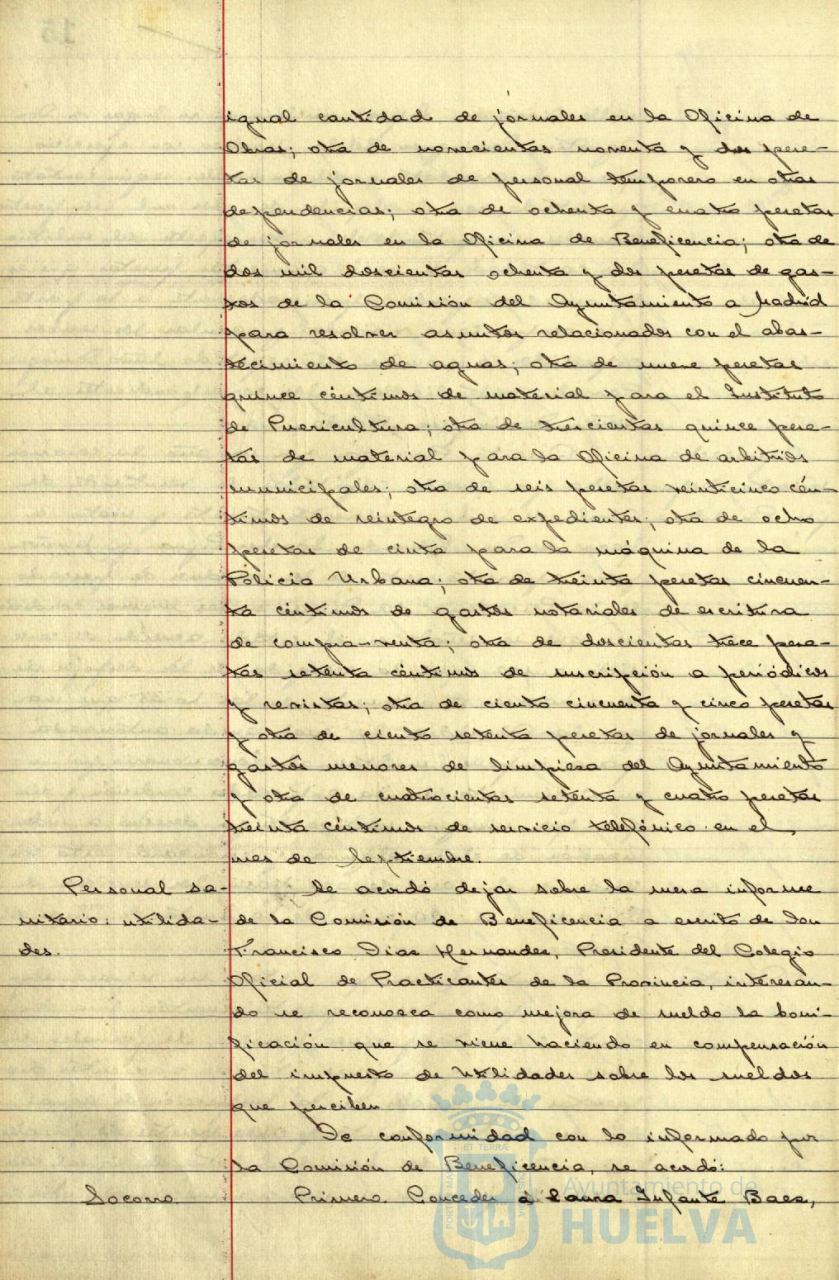 igual cantidad de jornales en la Oficina de
Obras; otra de novecientas noventa y dos pese-
tas de jornales de personal temporero en otras
dependencias; otra de ochenta y cuatro pesetas
de jornales en la Oficina de Beneficencia; otra de
dos mil doscientas ochenta y dos pesetas de gas-
tos de la Comisión del Ayuntamiento a Madrid
para resolver asuntos relacionados con el abas-
tecimiento de aguas; otra de nueve pesetas
quince céntimos de material para el Instituto
de Puericultura; otra de trescientas quince pese-
tas de material para la Oficina de arbitrios
municipales; otra de seis pesetas veinticinco cén-
timos de reintegro de expedientes; otra de ocho
pesetas de cinta para la máquina de la
Policia Urbana; otra de treinta pesetas cincuen-
ta céntimos de gastos notariales de escritura
de compra-venta; otra de doscientas trece pese-
tas setenta céntimos de suscripción a periódicos
y revistas; otra de ciento cincuenta y cinco pesetas
y otra de ciento setenta pesetas de jornales y
gastos menores de limpieza del Ayuntamiento
y otra de cuatrocientas setenta y cuatro pesetas
treinta céntimos de servicio telefónico en el
mes de Septiembre.
Personal sa-
nitario: utilida-
des.
Se acordó dejar sobre la mesa informe
de la Comisión de Beneficencia a escrito de Don
Francisco Dias Hernandez, Presidente del Colegio
Oficial de Practicantes de la Provincia, interesan-
do se reconosca como mejora de sueldo la boni-
ficación que se viene haciendo en compensación
del impuesto de Utilidades sobre los sueldos
que perciben
De conformidad con lo informado por
la Comisión de Beneficencia, se acordó:
Socorro.
Primero. Conceder á Laura Infante Baez,
Ayuntamiento de
HUELVA